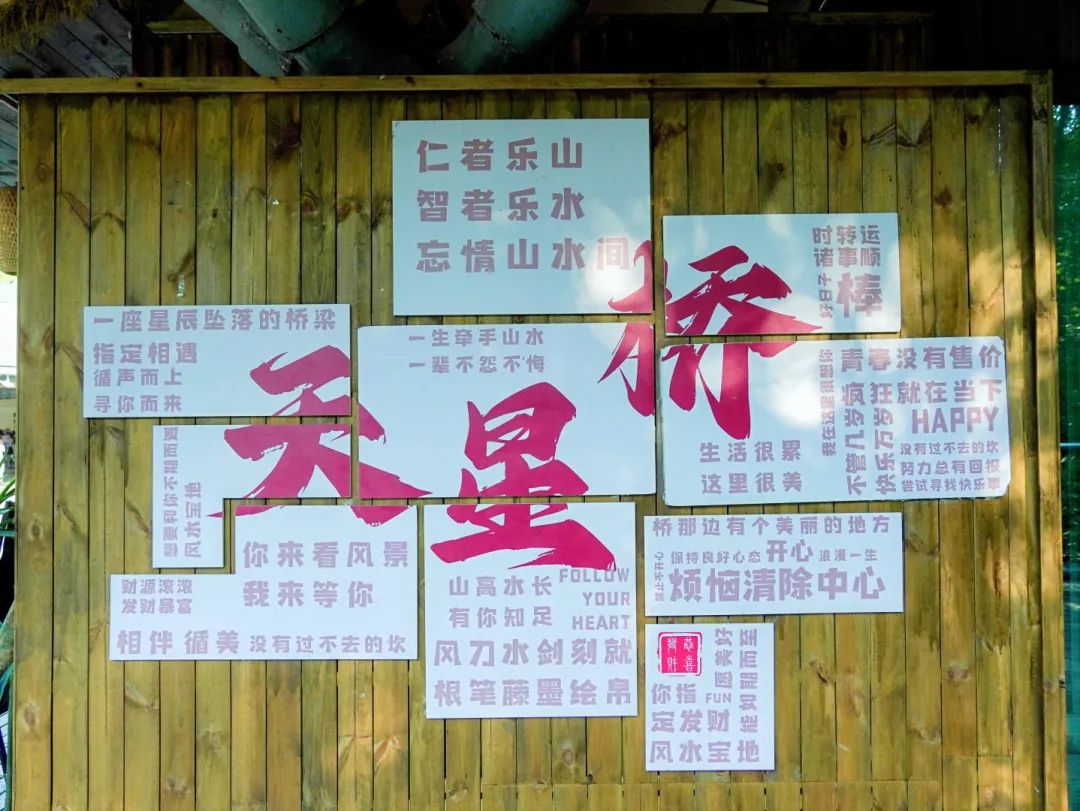 仁者乐山
智者乐水
忘情山水间
天星桥
时转运
诸事顺
好日子
棒
一座星辰坠落的桥梁
指定相遇
循声而上
寻你而来
一生牵手山水
一辈不怨不悔
生活很累
这里很美
我在这里很想你
不管几岁
快乐万岁
青春没有售价
疯狂就在当下
HAPPY
没有过不去的坎
努力总有回报
尝试寻找快乐事
想要和你不期而遇
风水宝地
你来看风景
我来等你
财源滚滚
发财暴富
相伴循美
没有过不去的坎
山高水长
有你知足
FOLLOW
YOUR
HEART
风刀水剑刻就
根笔藤墨绘帛
桥那边有个美丽的地方
禁止不开心
保持良好心态
开心
浪漫一生
烦恼清除中心
你指
定发财
风水宝地
FUN
愿美好
能如期而至